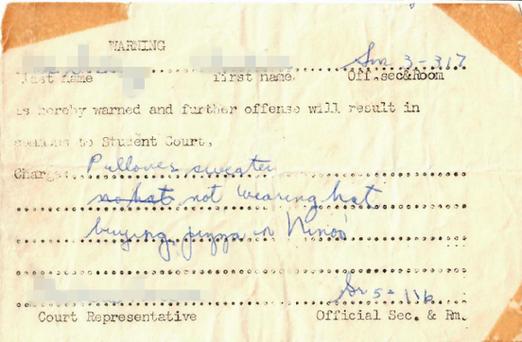 WARNING
Sm 3-317
Last name First name Off.sec&Room
is hereby warned and further offense will result in
summons to Student Court,
Charge: Pullover sweater
no hat not wearing hat
buying pizza in Ninos'
Sr 5-116
Court Representative Official Sec. & Rm.